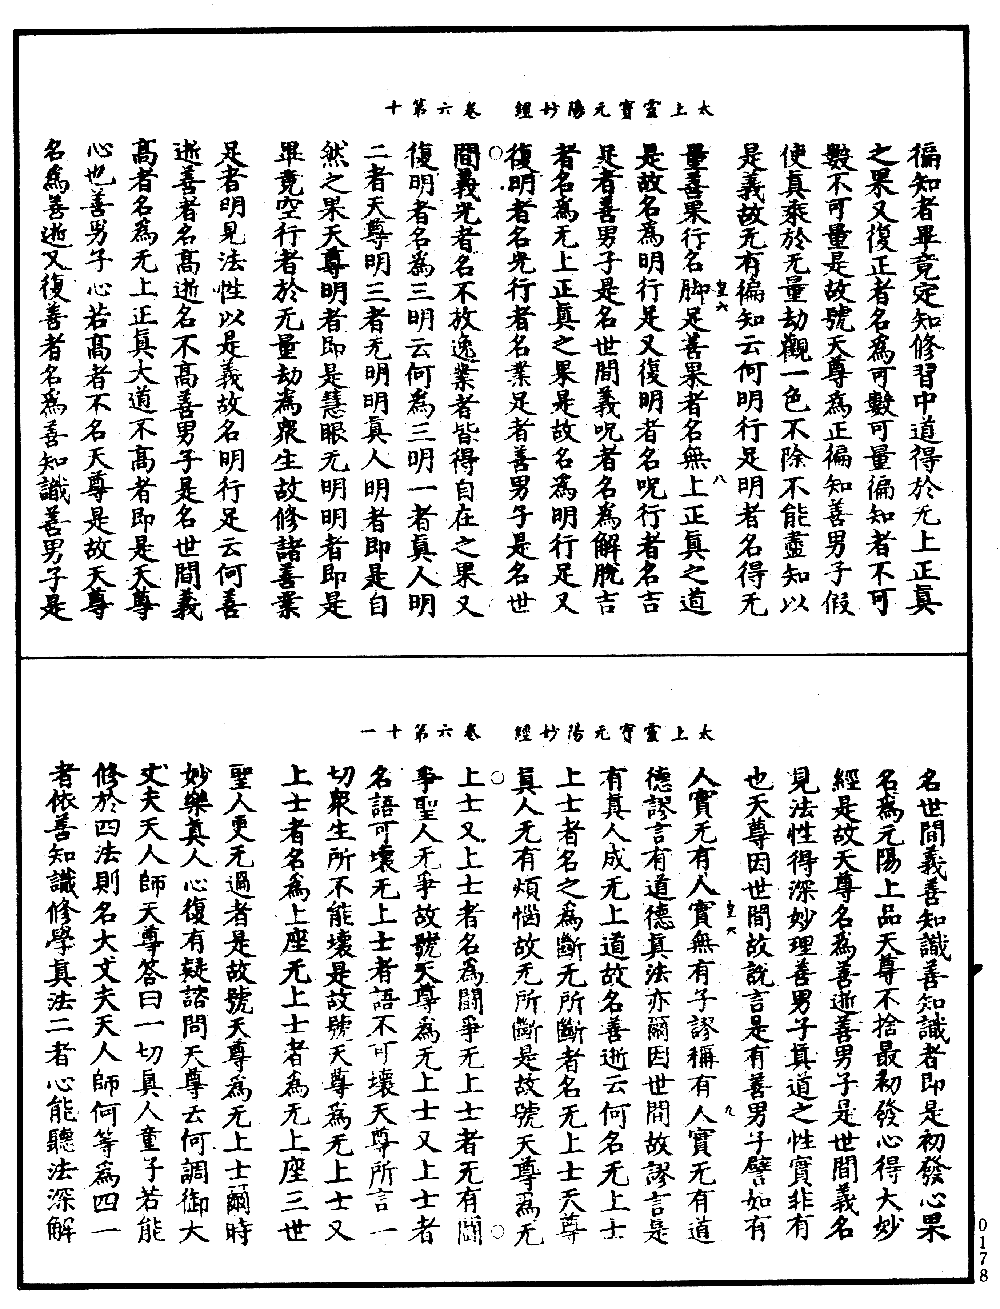 太上靈寶元陽妙經　卷六第十
徧知者畢竟定知修習中道得於无上正真
之果又復正者名為可數可量徧知者不可
數不可量是故號天尊為正徧知善男子假
使真乘於无量劫觀一色不除不能盡知以
是義故无有徧知云何明行足明者名得无
量善果行名脚足善果者名無上正真之道
是故名為明行足又復明者名呪行者名吉
足者善男子是名世間義呪者名為解脫吉
者名為无上正真之果是故名為明行足又
復明者名光行者名業足者善男子是名世
間義光者名不放逸業者皆得自在之果又
復明者名為三明云何為三明一者真人明
二者天尊明三者无明明真人明者即是自
然之果天尊明者即是慧眼无明明者即是
畢竟空行者於无量劫為衆生故修諸善業
足者明見法性以是義故名明行足云何善
逝善者名高逝名不高善男子是名世間義
高者名為无上正真大道不高者即是天尊
心也善男子心若高者不名天尊是故天尊
名為善逝又復善者名為善知識善男子是
皇六
八
太上靈寶元陽妙經　卷六第十一
名世間義善知識善知識者即是初發心果
名為元陽上品天尊不捨最初發心得大妙
經是故天尊名為善逝善男子是世間義名
見法性得深妙理善男子真道之性實非有
也天尊因世間故說言是有善男子譬如有
人實无有人實無有子謬稱有人實无有道
德謬言有道德真法亦爾因世間故謬言是
有真人成无上道故名善逝云何名无上士
上士者名之為斷无所斷者名无上士天尊
真人无有煩惱故无所斷是故號天尊為无
上士又上士者名為鬪爭无上士者无有鬪
爭聖人无爭故號天尊為无上士又上士者
名語可壞无上士者語不可壞天尊所言一
切衆生所不能壞是故號天尊為无上士又
上士者名為上座无上士者為无上座三世
聖人更无過者是故號天尊為无上士爾時
妙樂真人心復有疑諮問天尊云何調御大
丈夫天人師天尊答曰一切真人童子若能
修於四法則名大丈夫天人師何等為四一
者依善知識修學真法二者心能聽法深解
皇六
九
0178